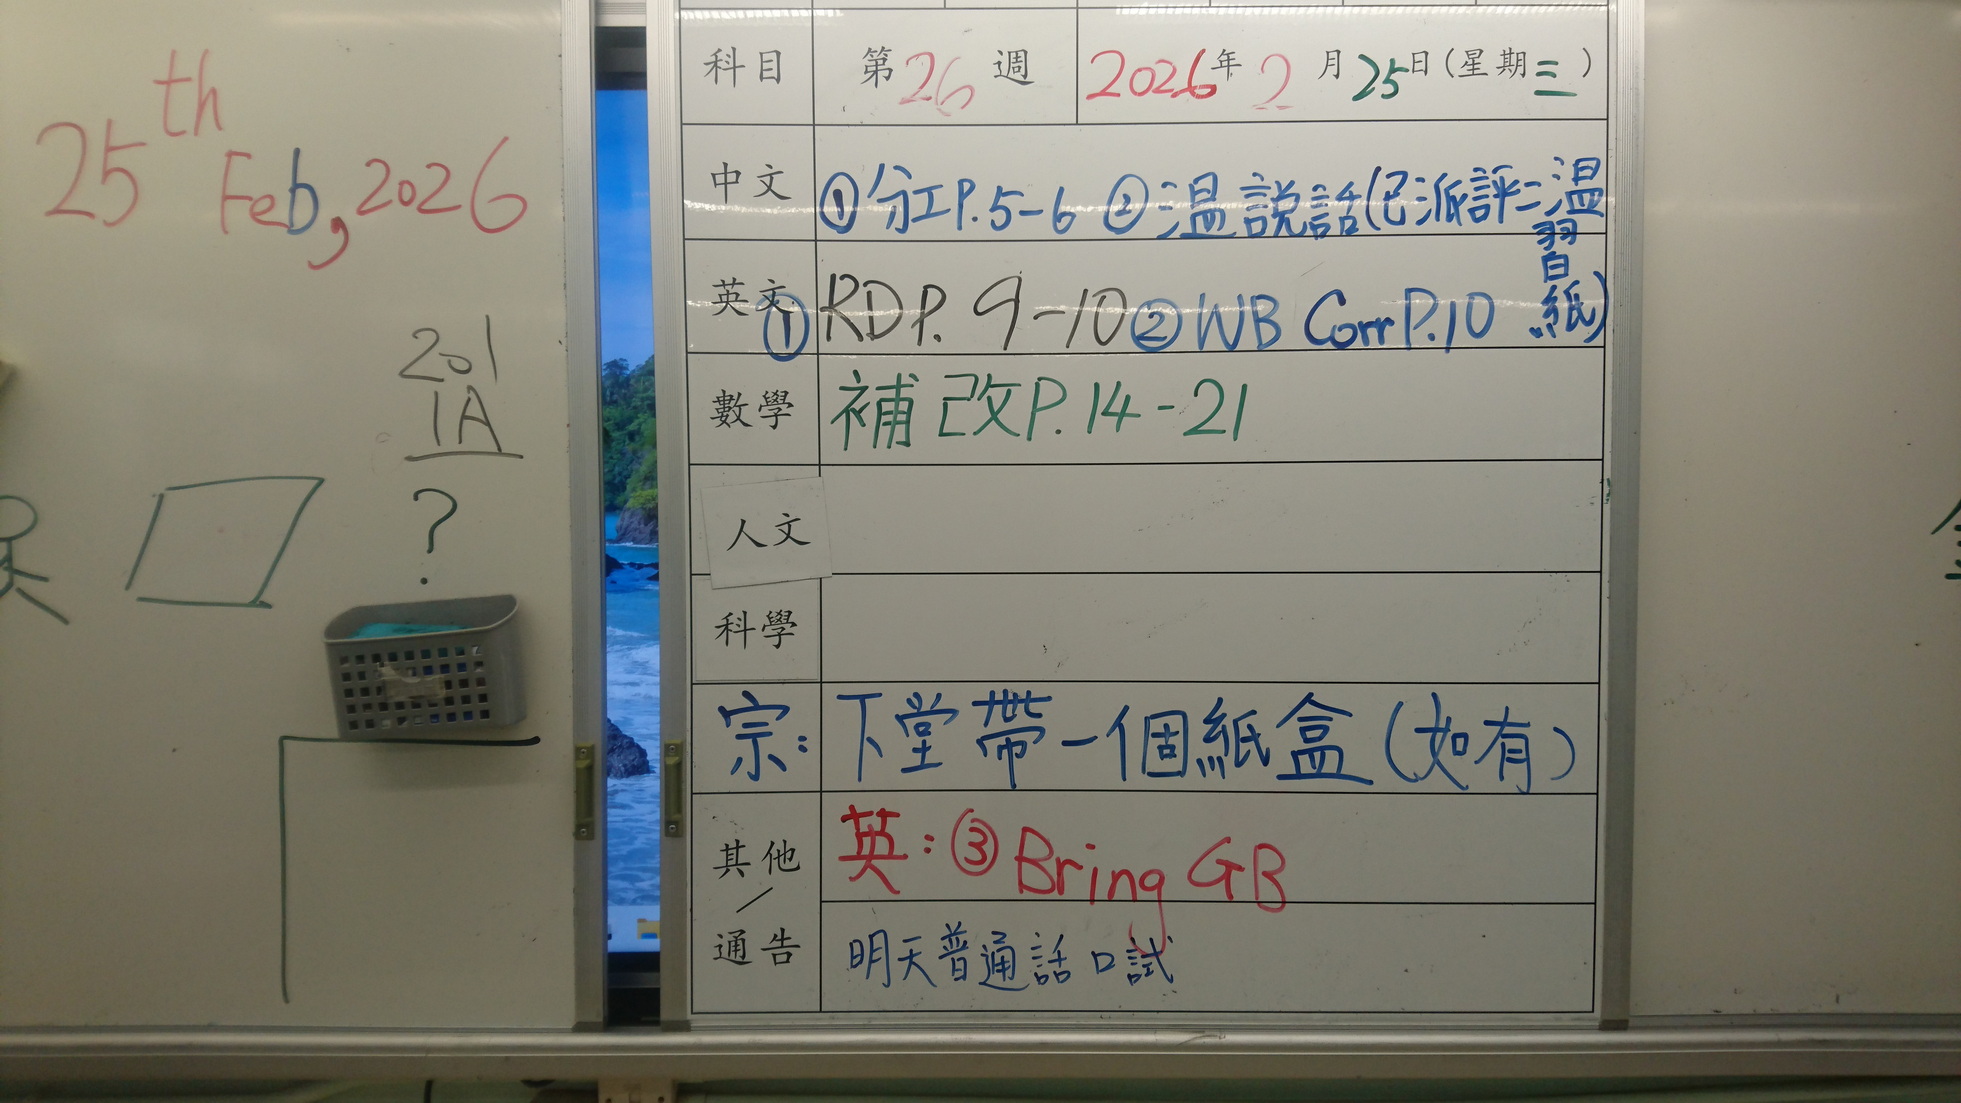 25th Feb, 2026
201
1A
?
科目 第26週 2026年2月25日(星期三)
中文 ①分工P.5-6 ②溫說話(已派評二溫習白紙)
英文 ①RDP. 9-10 ②WB Corr P.10
數學 補改P.14-21
人文
科學
宗: 下堂帶一個紙盒(如有)
其他/通告 英:③Bring GB
明天普通話口試